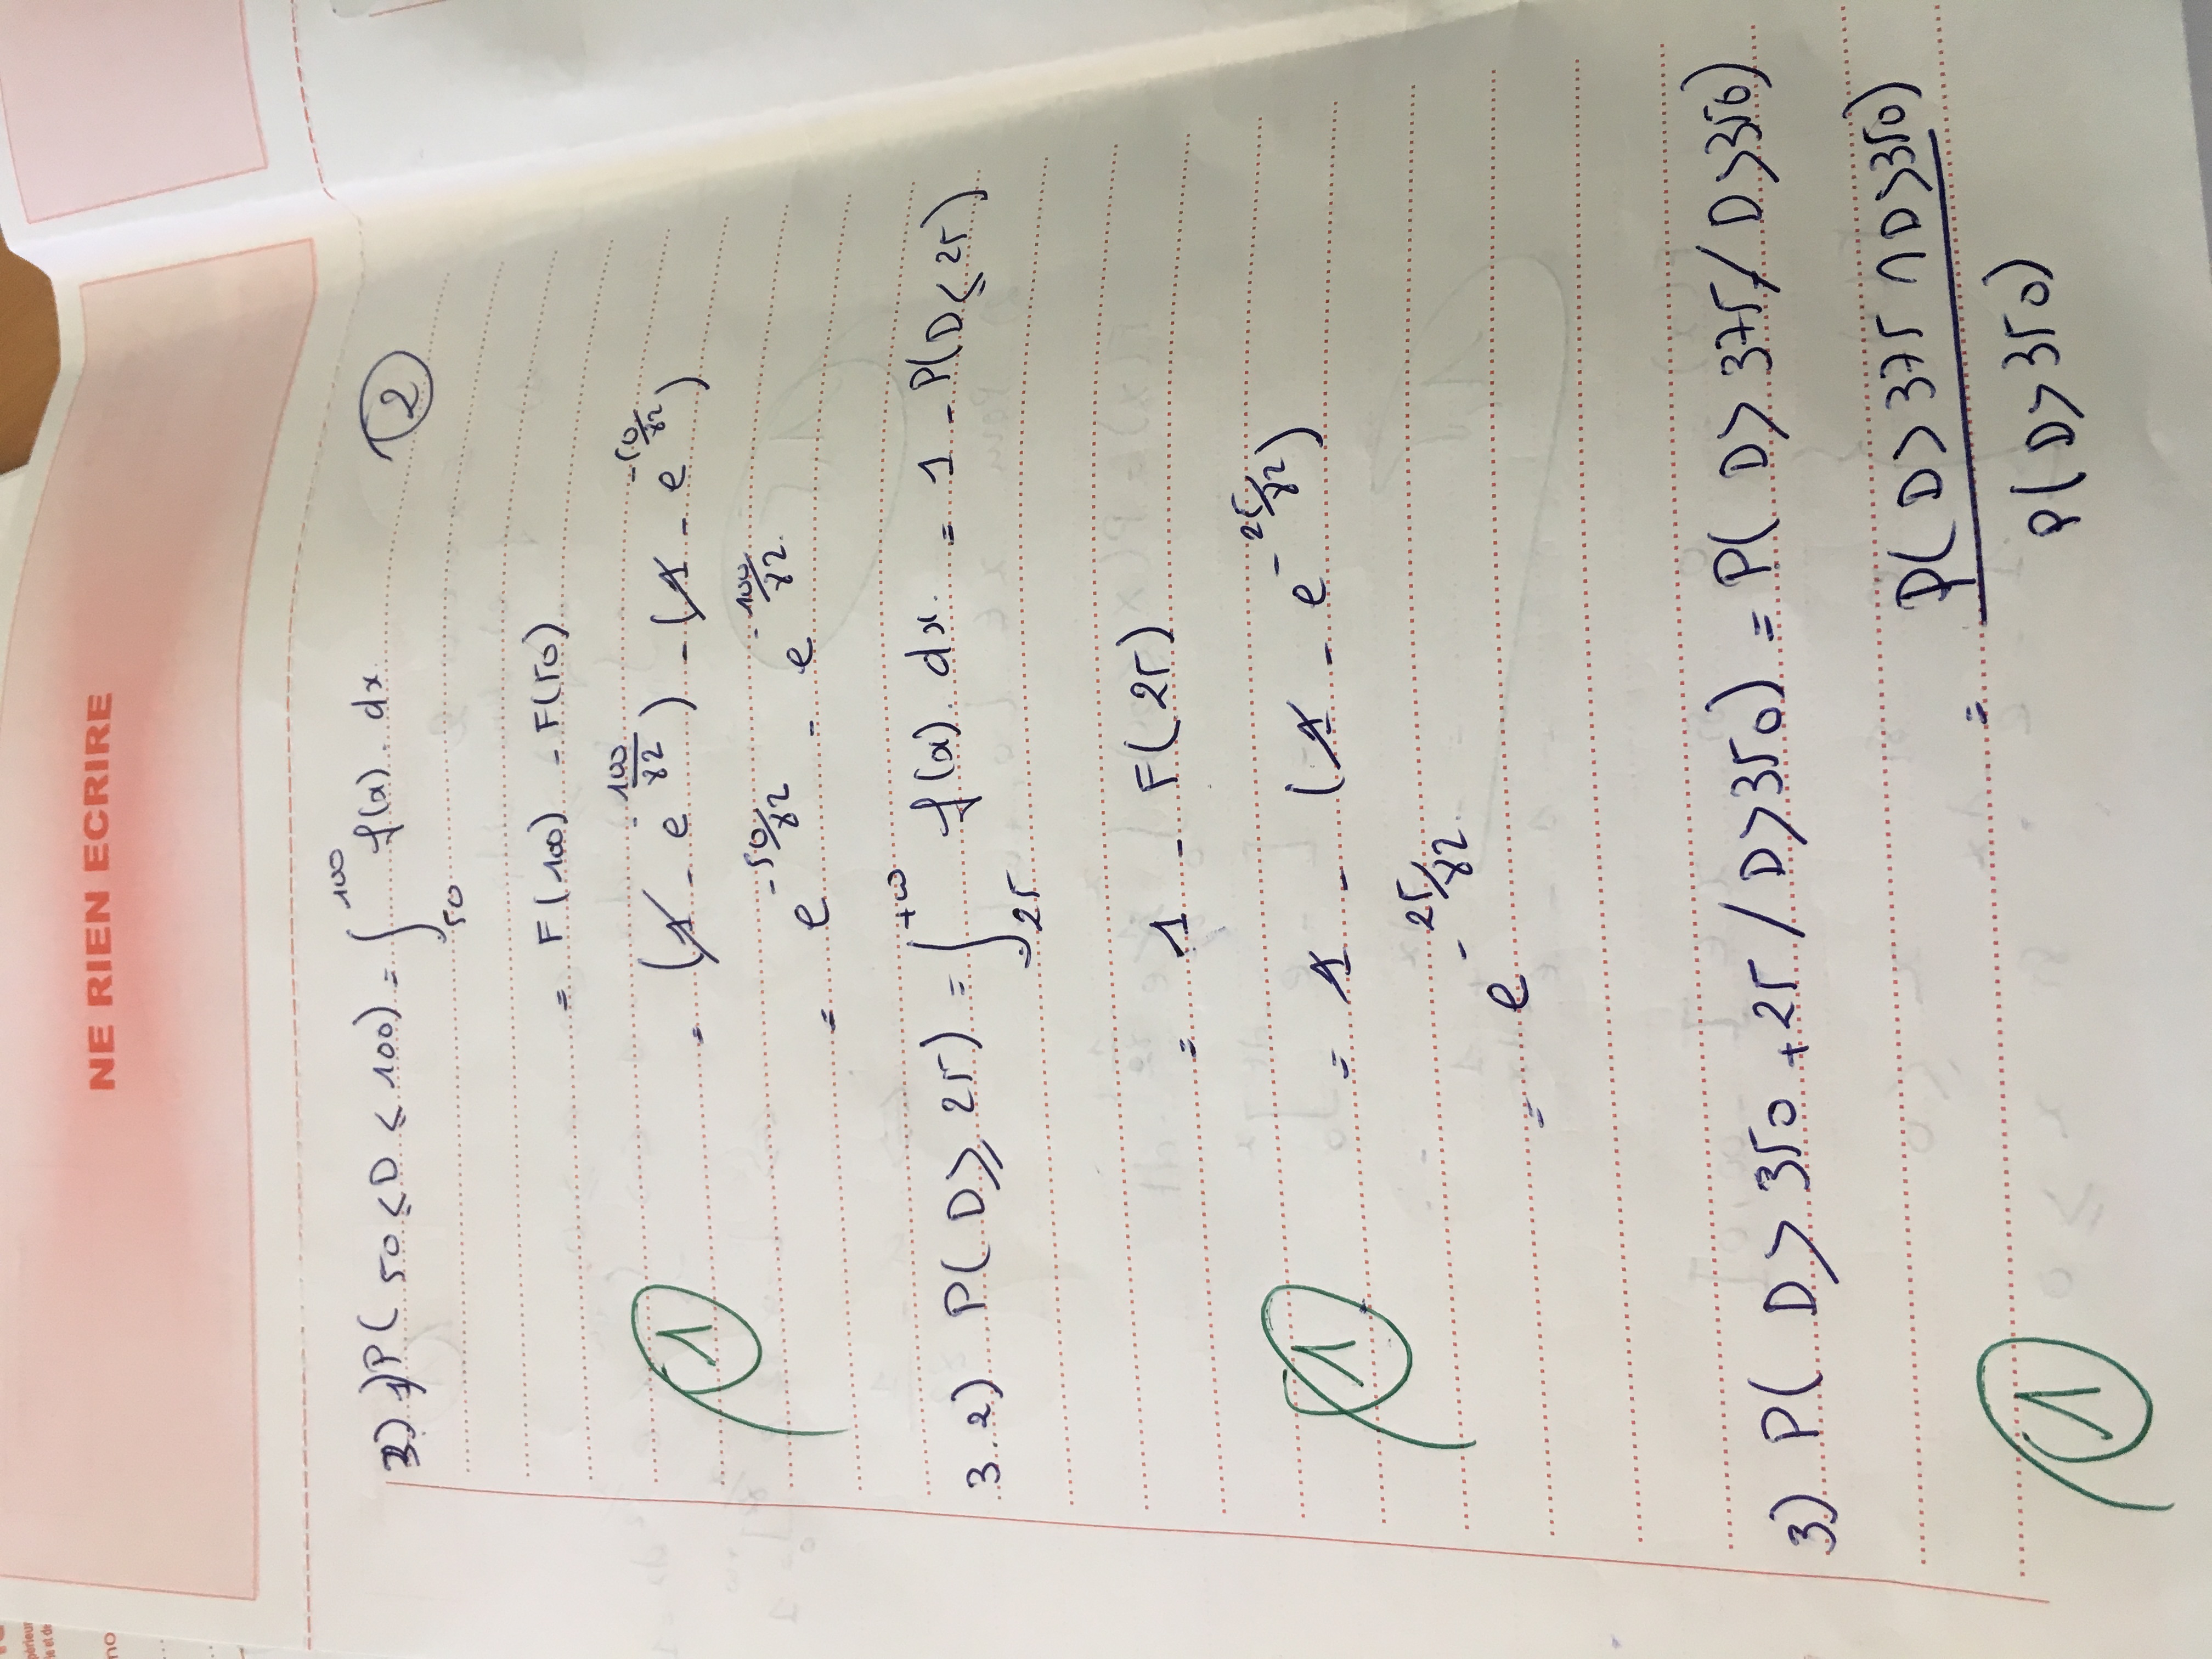 NE RIEN ECRIRE
3) 1) P( 50 ≤ D ≤ 100) = ∫_{50}^{100} f(x). dx
2
= F(100) - F(50)
= (1 - e^{-100/82}) - (1 - e^{-50/82})
1
= e^{-50/82} - e^{-100/82}.
3.2) P( D ≥ 25) = ∫_{25}^{+∞} f(x). dx. = 1 - P(D ≤ 25)
= 1 - F(25)
1
= 1 - (1 - e^{-25/82})
= e^{-25/82}.
3) P( D > 350 + 25 / D > 350) = P( D > 375 / D > 350)
= P( D > 375 ∩ D > 350)
P( D > 350)
1